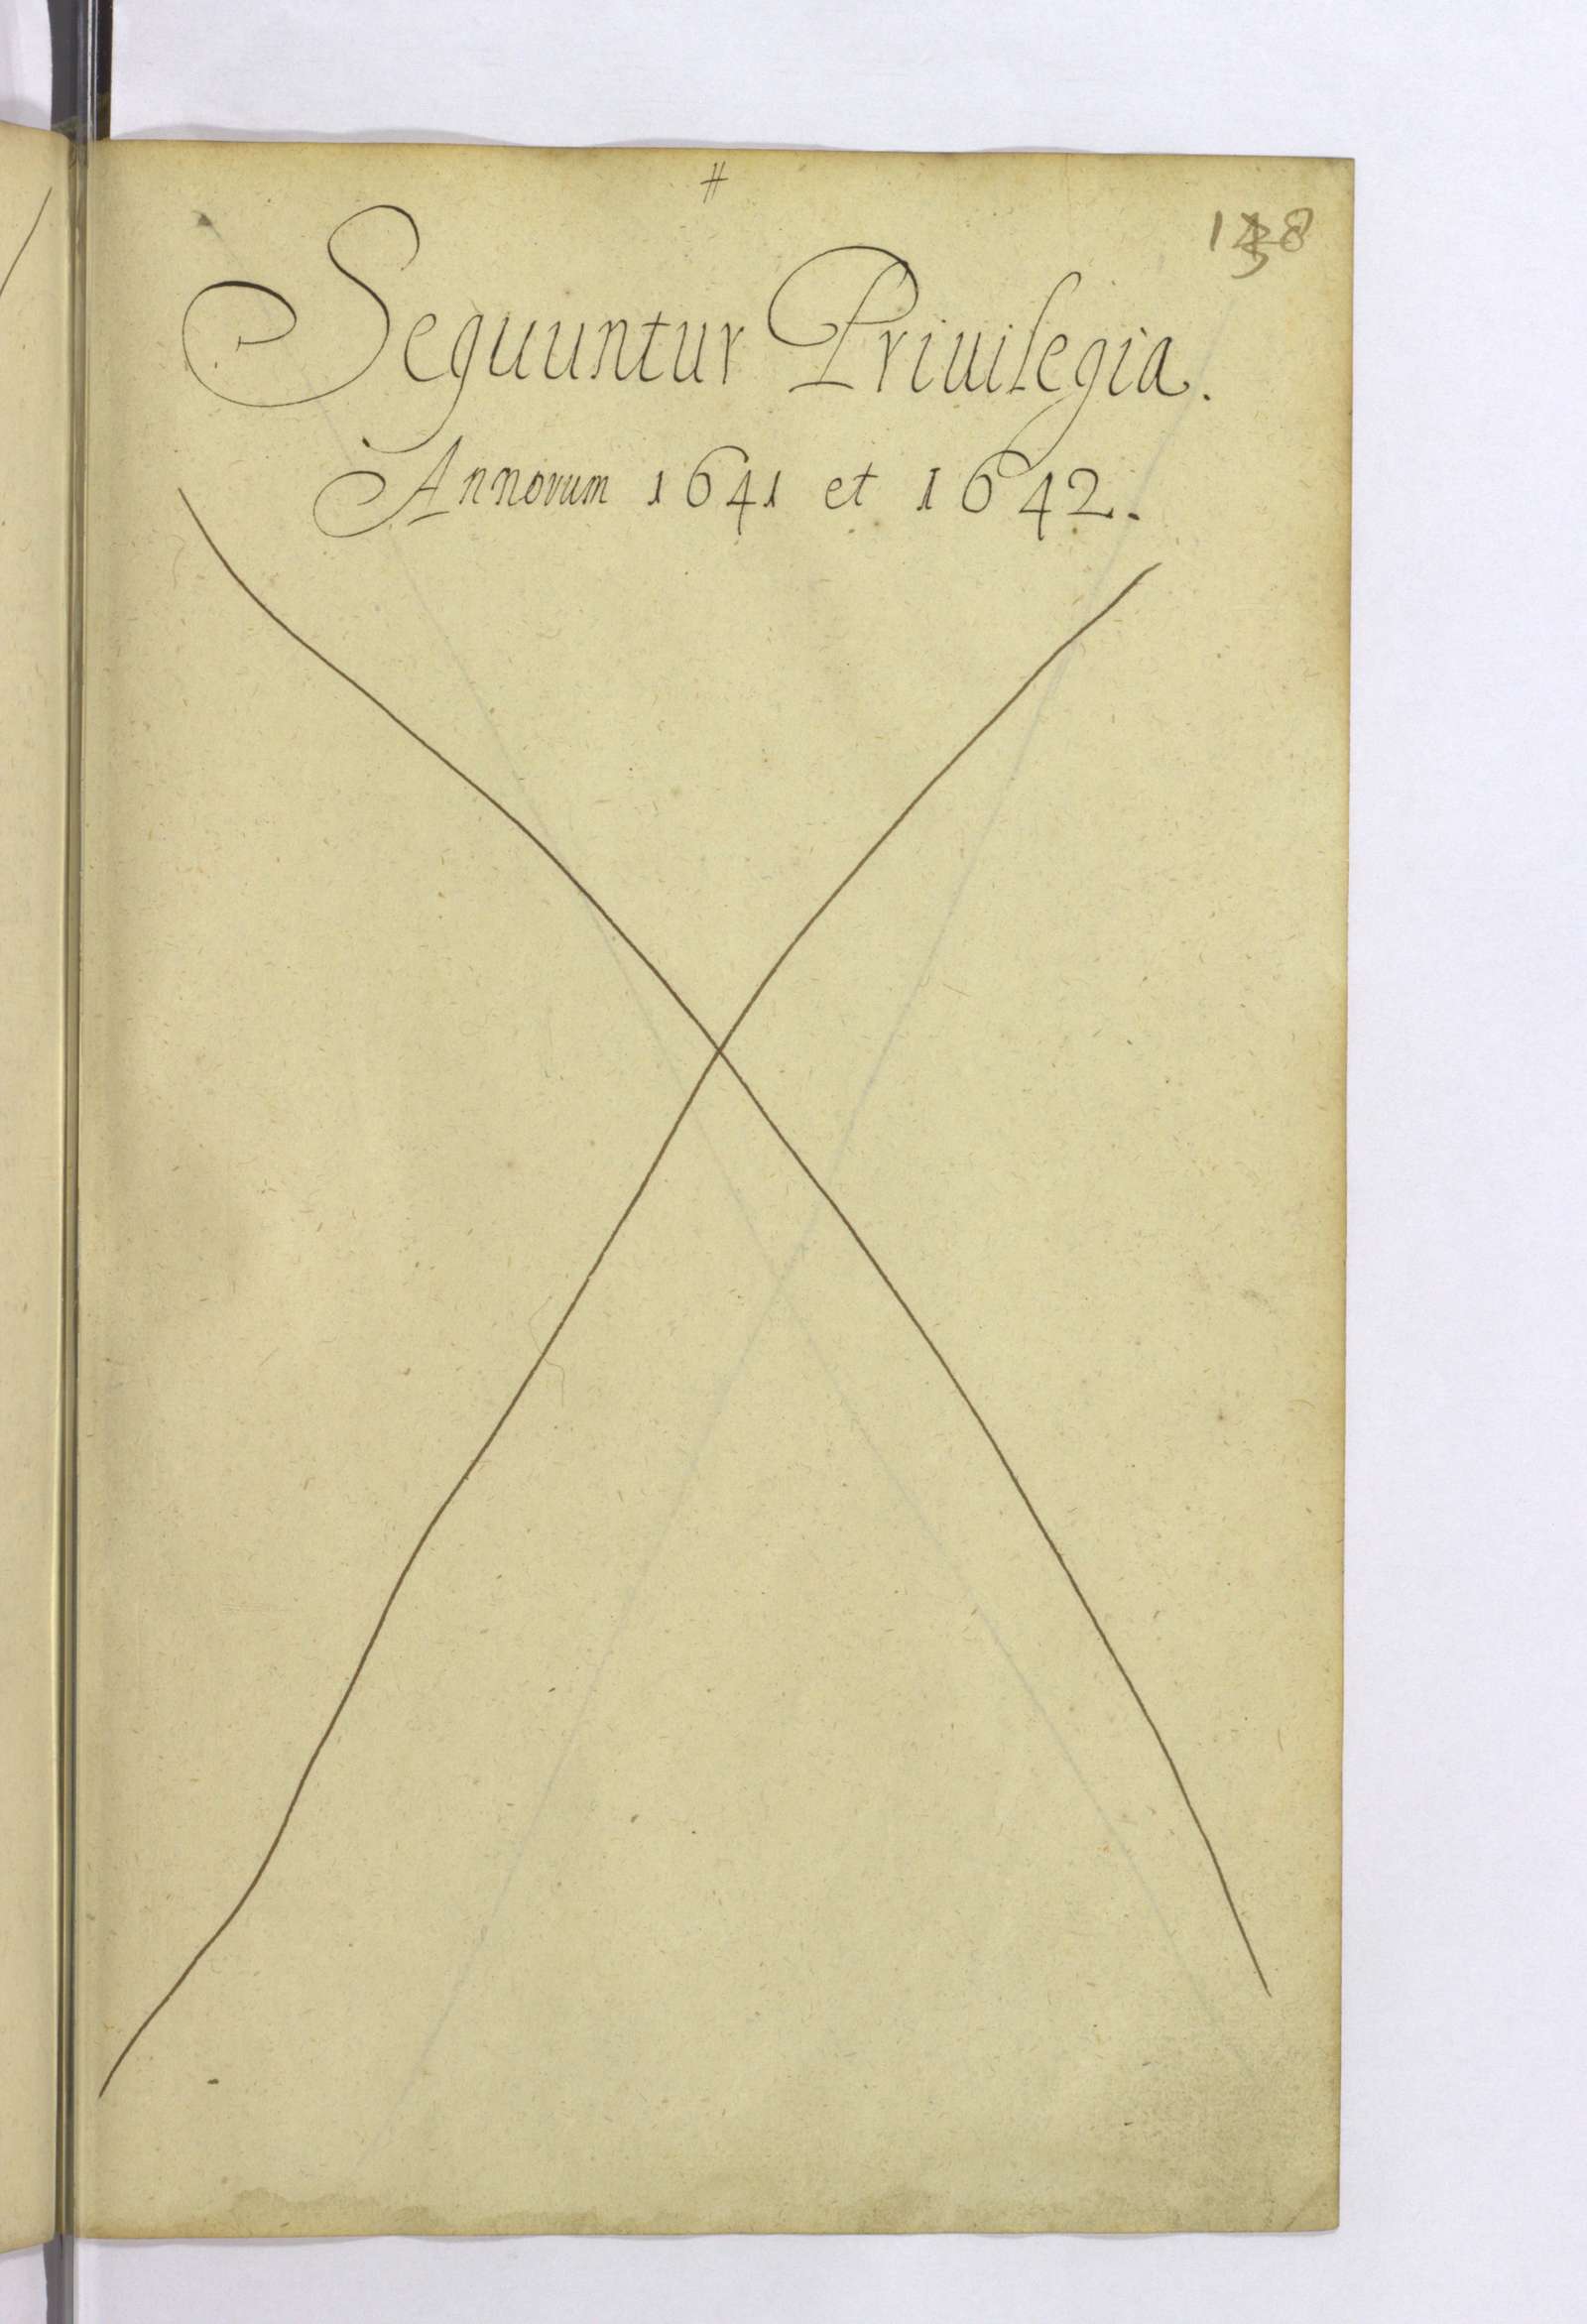 #
Sequuntur Priuilegia.
Annorum 1641 et 1642.